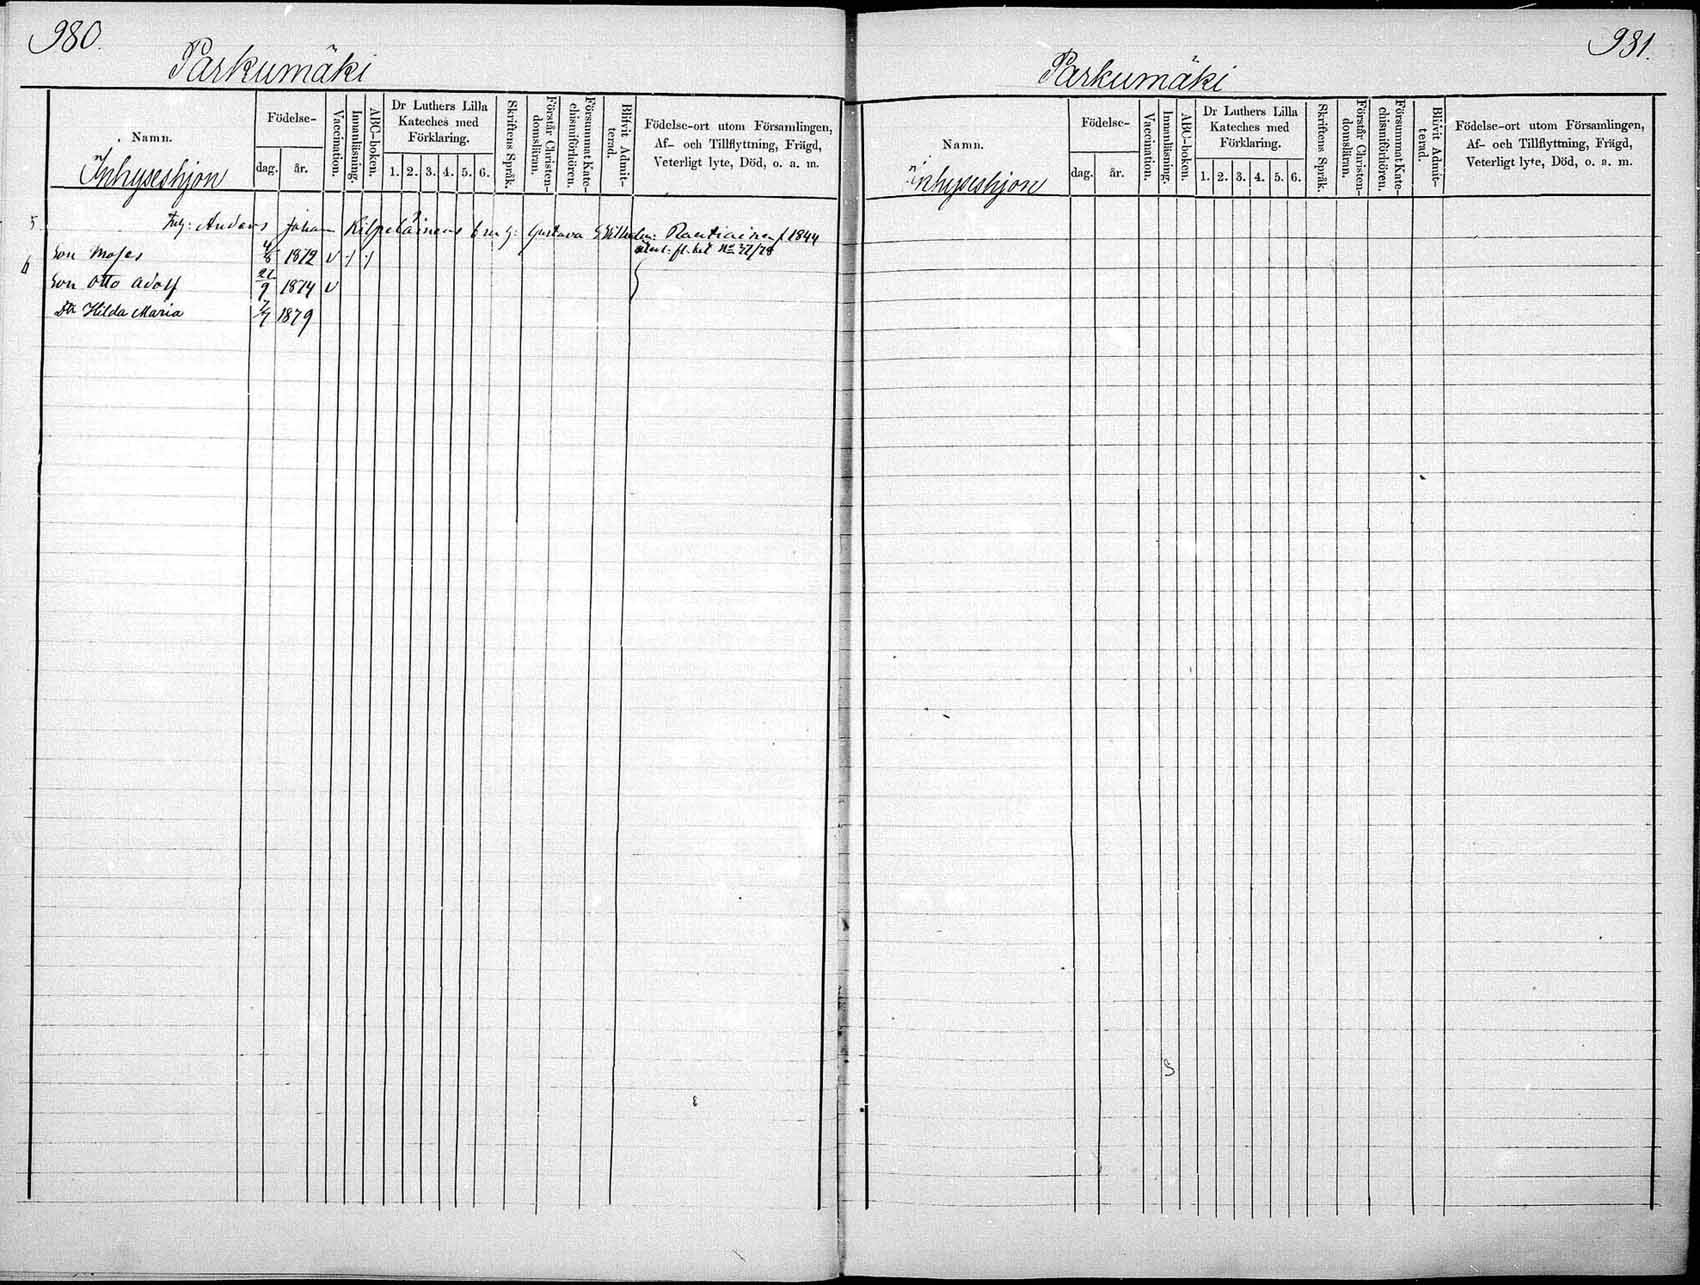 980.
Parkumäki
Namn.
Födelse-
dag.
år.
Vaccination.
Innanläsning.
ABC-boken.
Dr Luthers Lilla
Kateches med
Förklaring.
1. 2. 3. 4. 5. 6.
Skriftens Språk.
Förstår Christen-
domsläran.
Försummat Kate-
chismiförhören.
Blifvit Admit-
terad.
Födelse-ort utom Församlingen,
Af- och Tillflyttning, Frägd,
Veterligt lyte, Död, o. a. m.
Inhyseshjon
5
Anders Johan Kilpeläinens Gustava Rautiainen 1844
Son Moses 4/8 1872 v
6
Son Otto Adolf 21/9 1874 v
Dr Hilda Maria 7/7 1879
981.
Parkumäki
Namn.
Födelse-
dag.
år.
Vaccination.
Innanläsning.
ABC-boken.
Dr Luthers Lilla
Kateches med
Förklaring.
1. 2. 3. 4. 5. 6.
Skriftens Språk.
Förstår Christen-
domsläran.
Försummat Kate-
chismiförhören.
Blifvit Admit-
terad.
Födelse-ort utom Församlingen,
Af- och Tillflyttning, Frägd,
Veterligt lyte, Död, o. a. m.
Inhyseshjon